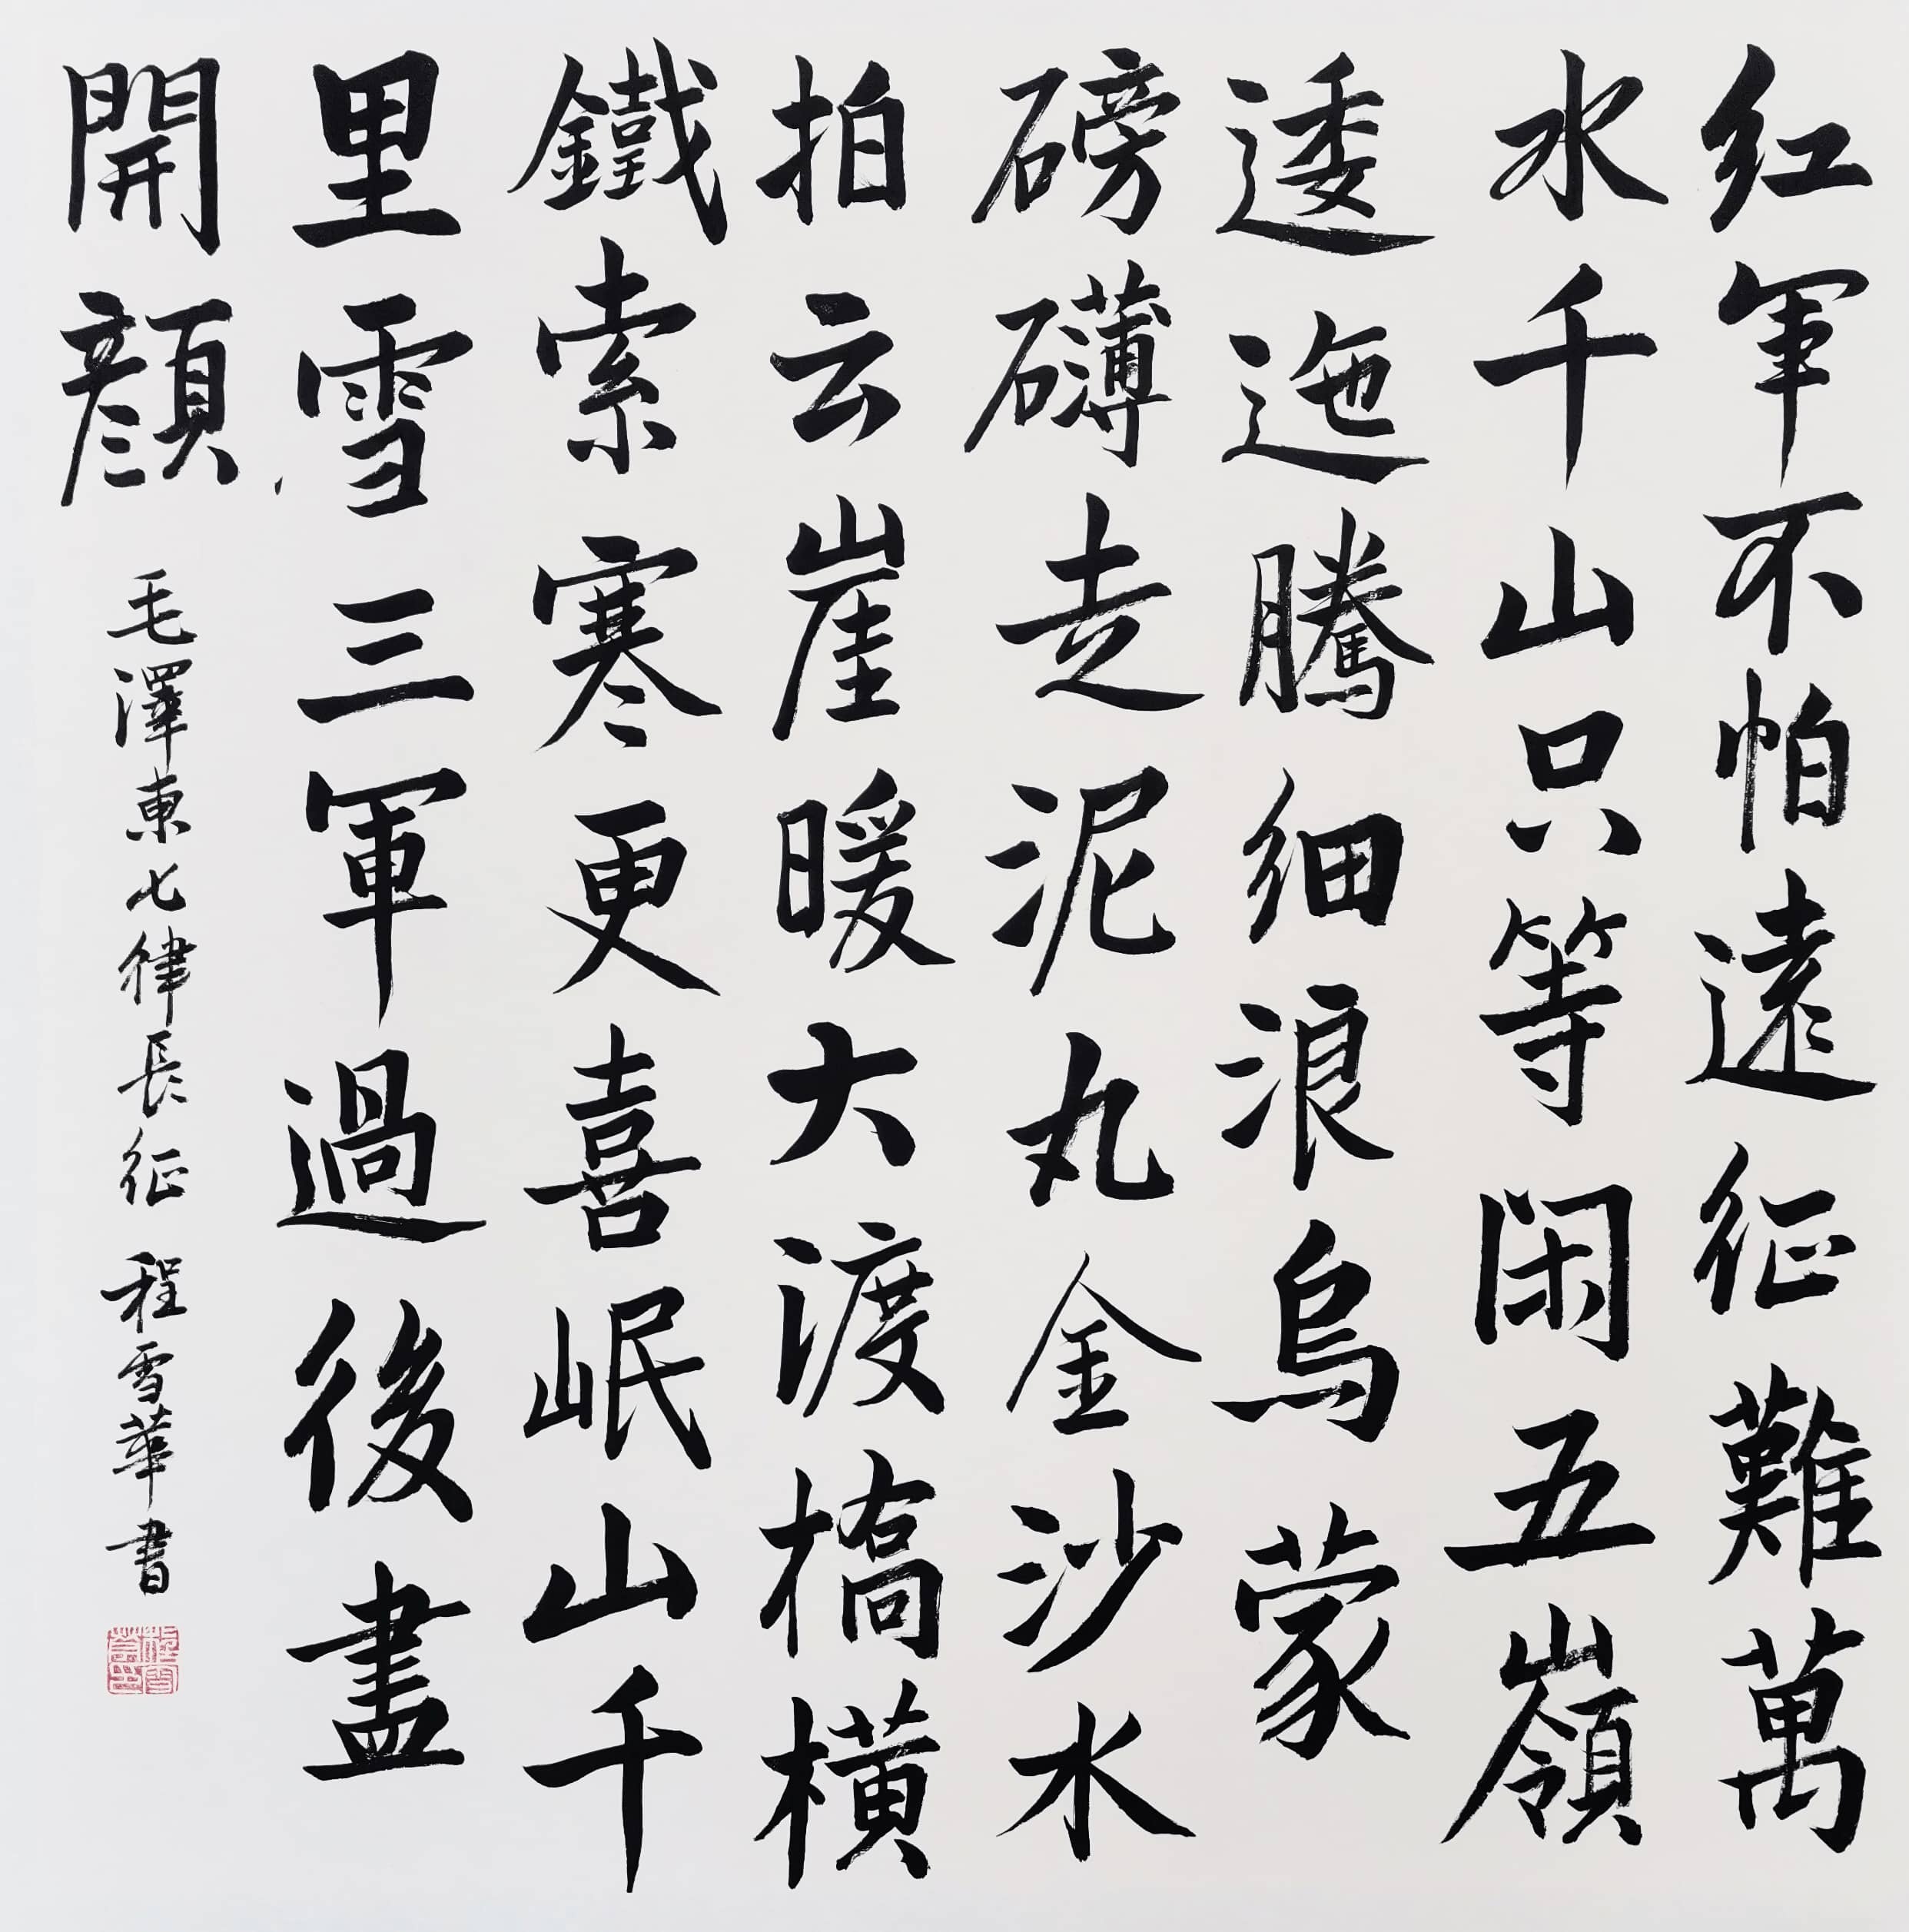 红军不怕遠征難萬
水千山只等闲五嶺
逶迤腾细浪烏蒙
磅礴走泥丸金沙水
拍云崖暖大渡橋橫
鐵索寒更喜岷山千
里雪三軍過後盡
開顔
毛澤東七律長征 程雪華書